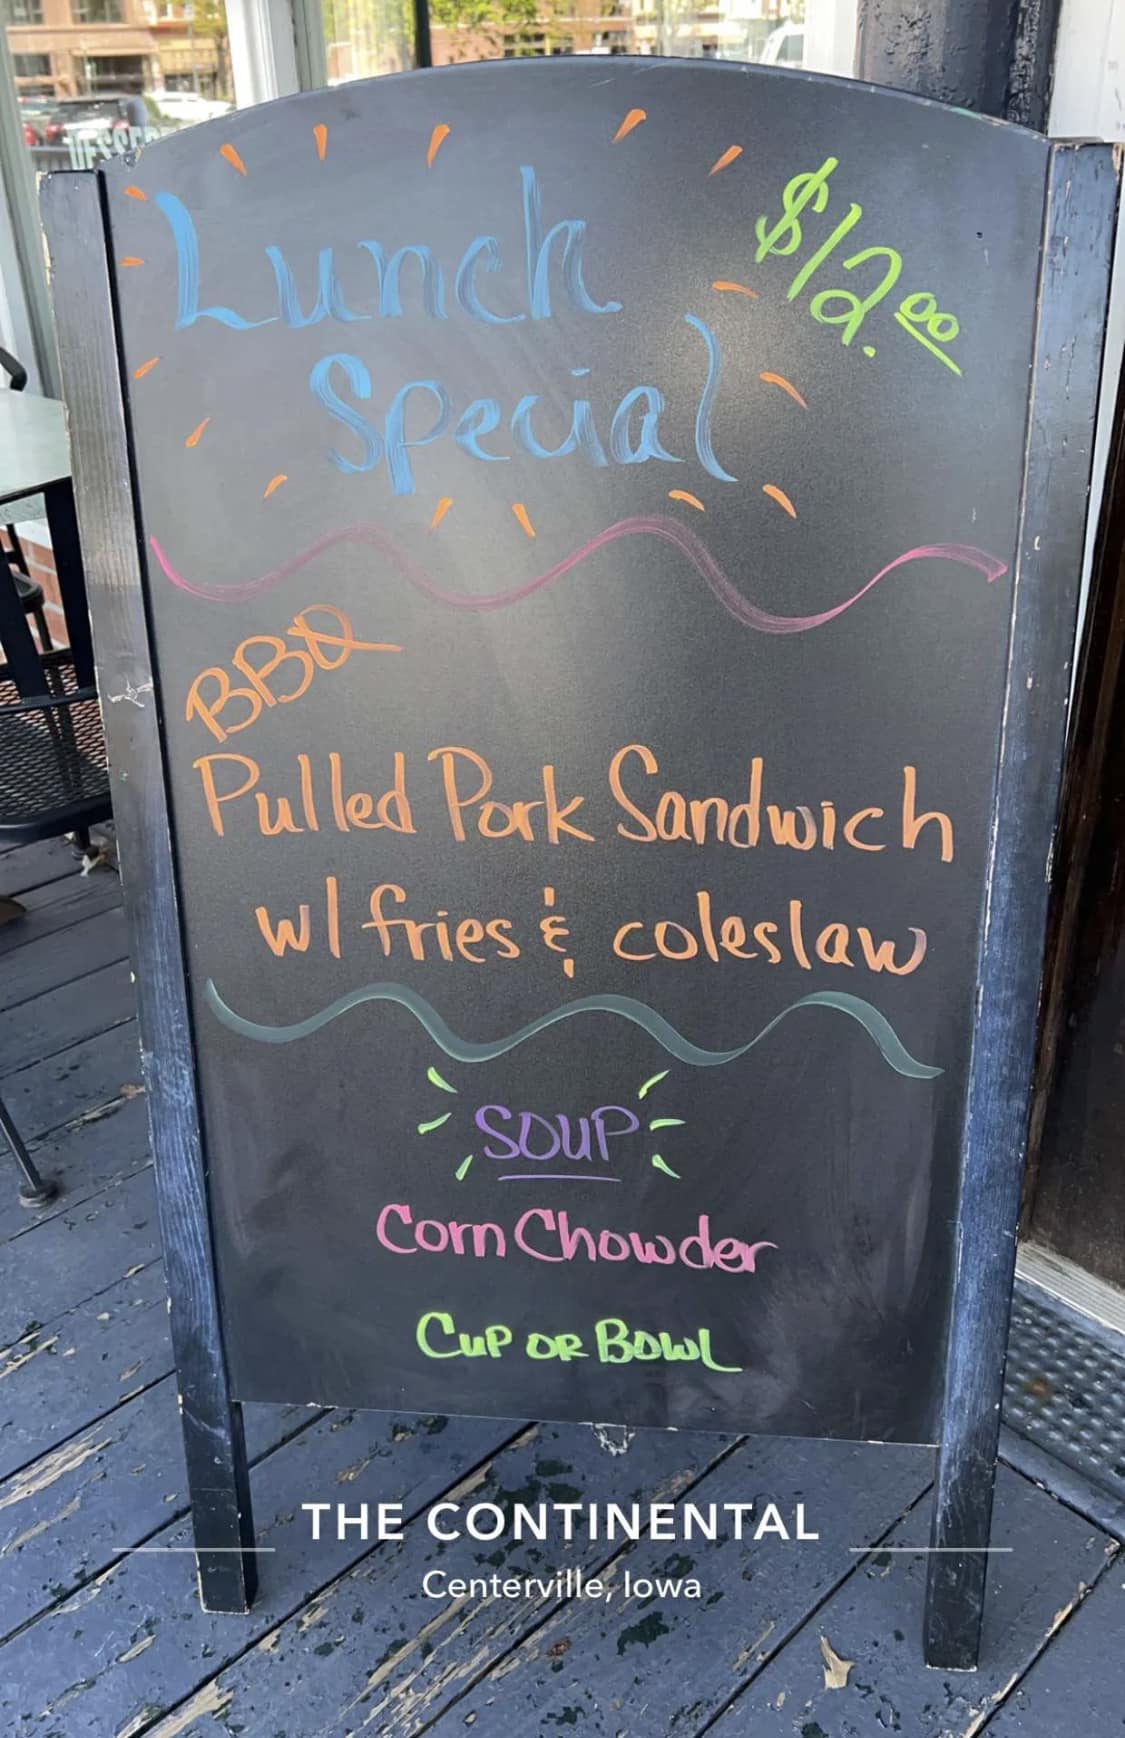 Lunch
Special
$12.00
BBQ
Pulled Pork Sandwich
w/ fries & coleslaw
SOUP
Corn Chowder
CUP OR BOWL
THE CONTINENTAL
Centerville, Iowa